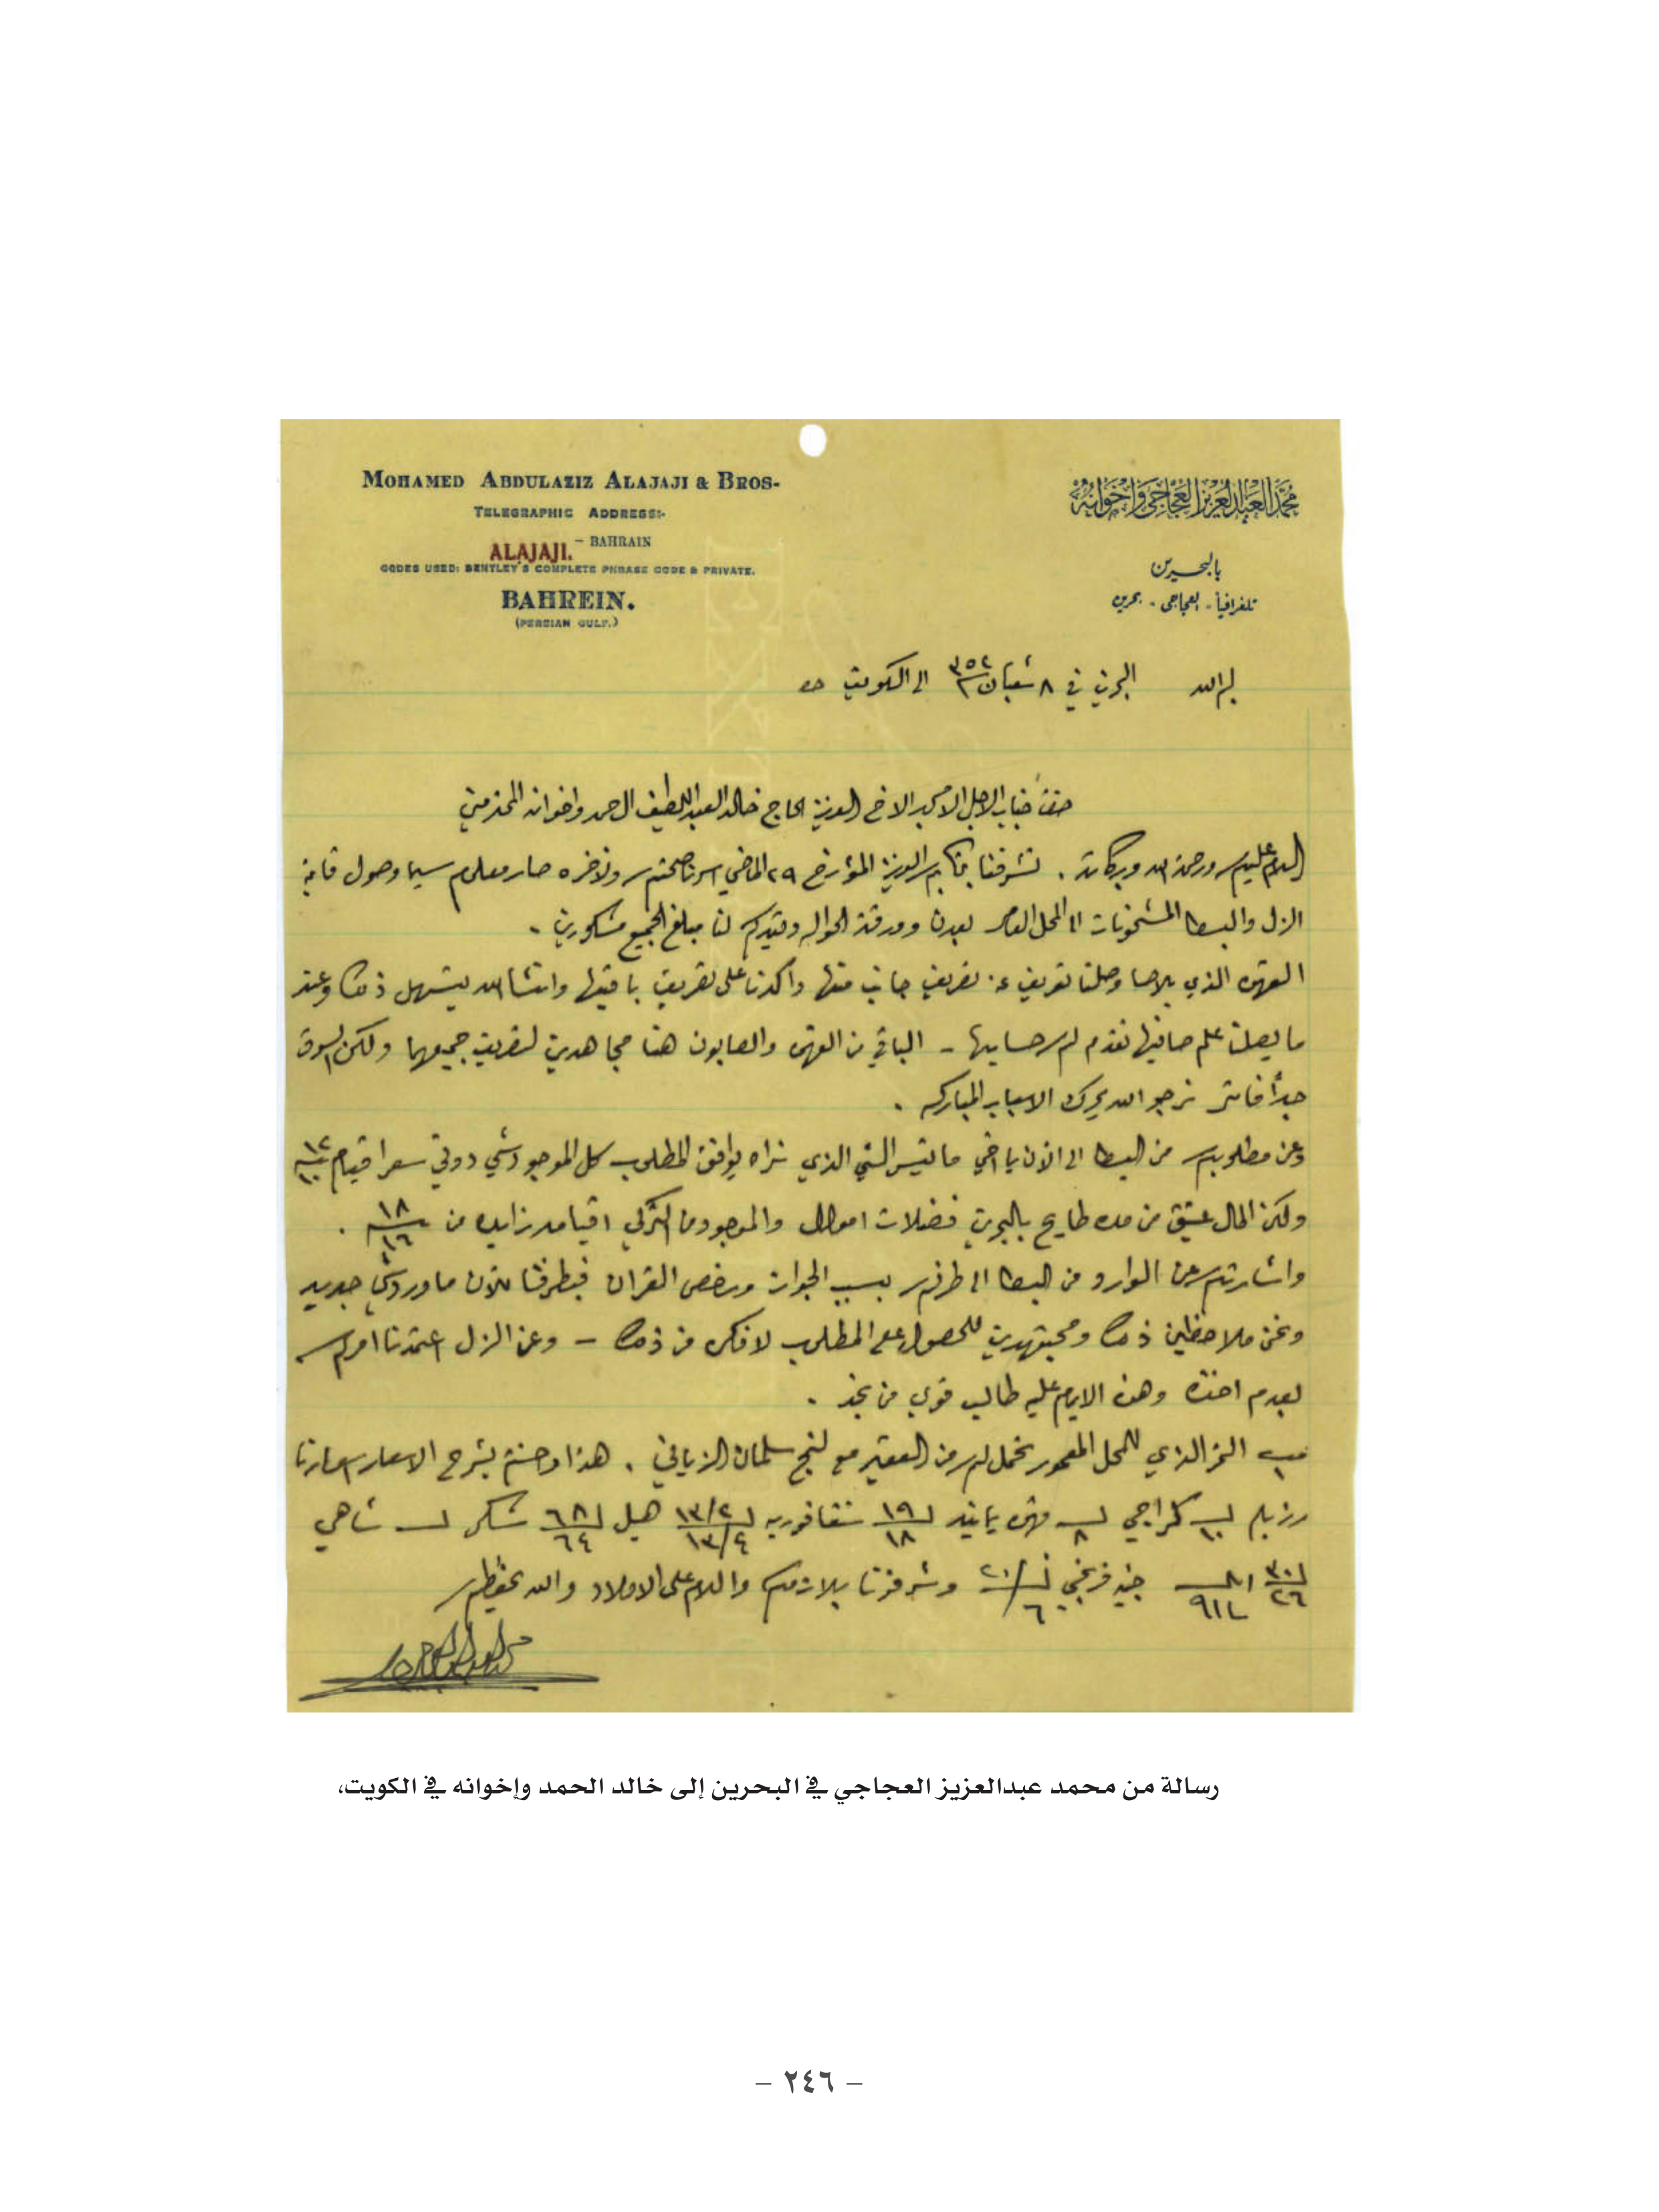 MOHAMED ABDULAZIZ ALAJAJI & BROS-
TELEGRAPHIC ADDRESS:-
ALAJAJI. - BAHRAIN
CODES USED: BENTLEY'S COMPLETE PHRASE CODE & PRIVATE.
BAHREIN.
(PERSIAN GULF.)
محمد العبدالعزيز العجاجي واخوانه
بالبحرين
تلغرافيا - العجاجي - بحرين
بسم الله البحرين في ٨ شعبان ٣٥٢ الى الكويت
جناب الاجل الامجد الاخ العزيز الحاج خالد العبداللطيف الحمد واخوانه المحترمين
السلام عليكم ورحمة الله وبركاته . تشرفنا بكتابكم العزيز المؤرخ ٢٩ الماضي صحتكم وتذخره صار معلوم سيما وصول قايمة
الزل والبسط المشحونات الى المحل العامر بعدن وورقة الحواله وقيدكم لنا مبلغ الجميع مشكورين .
القهوه الذي بالحسا وصلنا تعريف عن تصريف جانب منها واكدنا على تصريف باقيها وانشاالله يتسهل ذلك وعند
ما يصلنا علم صافيها نقدم لكم حسابها - الباقي من القهوه والصابون هنا مجاهدين لتصريف جميعها ولكن السوق
جداً فاتر نرجو الله يحرك الاسباب المباركه .
وعن مطلوبكم من البسط الى الآن يا اخي ما تيسر الشي الذي نراه يوافق المطلوب كل الموجود شي دوني سعر اقيام
ولكن المال عتيق من مده طايح بالبحرين فضلات اموال والموجود اقيامه زايده من ١٨ ١٦ .
واشارتكم عن الوارد من البسط الى طرفكم بسبب ورخص القران فبطرفنا للآن ما ورد شي جديد
ونحن ملاحظين ذلك ومجتهدين للحصول على المطلوب لا فكر من ذلك - وعن الزل اعتمدنا امركم
بعدم اخذه وهذه الايام عليه طالب قوي من نجد .
الذي للمحل المعمور تحمل لكم من العقير مع سلمان الزياني . هذا بشرح الاسعار
كراجي ٨ قهوه ١٩ ١٨ سنقافوريه ١٣/٢ ١٣/٤ هيل ٦٨ ٦٤ شكر شاهي
٣٠ ٢٦ جنيه فرنجي ٢٠/٦ وشرفونا بلازمكم والسلام على الاولاد والله يحفظكم
رسالة من محمد عبدالعزيز العجاجي في البحرين إلى خالد الحمد وإخوانه في الكويت،
– ٢٤٦ –